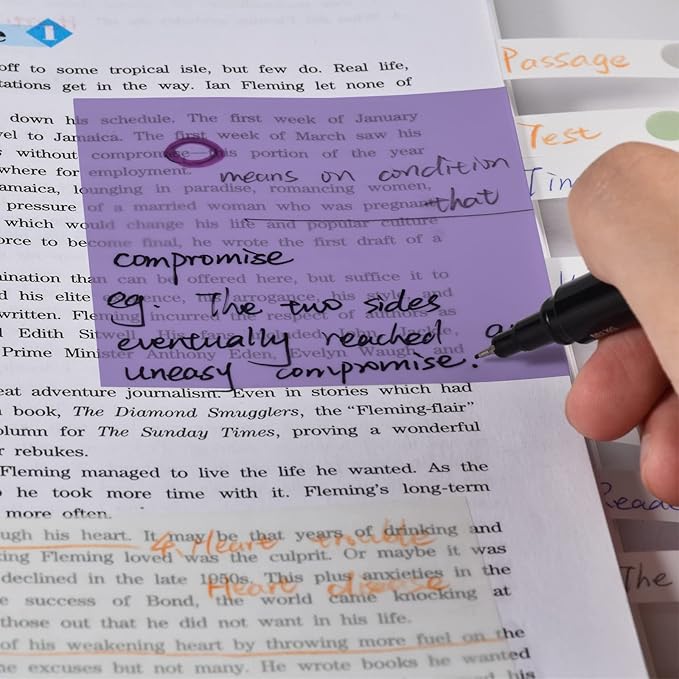 e 1
off to some tropical isle, but few do. Real life,
tations get in the way. Ian Fleming let none of
down his schedule. The first week of January
vel to Jamaica. The first week of March saw his
s without compromise—this portion of the year
where for employment.
means on condition
that
amaica, lounging in paradise, romancing women,
pressure of a married woman who was pregnant
which would change his life and popular culture
orce to become final, he wrote the first draft of a
compromise
eg. The two sides
eventually reached a
uneasy compromise.
ination than can be offered here, but suffice it to
d his elite arrogance, his style and
written. Fleming incurred the respect of authors as
d Edith Sitwell. His fans included John
Prime Minister Anthony Eden, Evelyn Waugh, and
eat adventure journalism. Even in stories which had
book, The Diamond Smugglers, the “Fleming-flair”
olumn for The Sunday Times, proving a wonderful
r rebukes.
Fleming managed to live the life he wanted. As the
he took more time with it. Fleming's long-term
more often.
ugh his heart. It may be that years of drinking and
4. Heart trouble
king Fleming loved was the culprit. Or maybe it was
declined in the late 1950s. This plus anxieties in the
Heart disease
e success of Bond, the world came knocking at
those out that he did not want in his life.
of his weakening heart by throwing more fuel on the
ne excuses but not many. He wrote books he wanted
Passage
Test
Tim
Reade
The